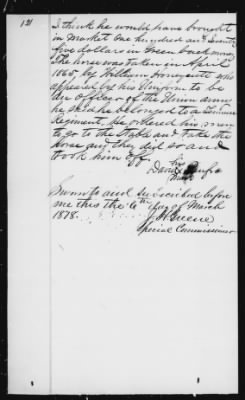 121
I think he would have brought
in market one hundred and seventy
five dollars in Green back money
The horse was taken in April
1865, by William
appeared by his Uniform to be
an officer of the Union army
he said he belonged to a
Regiment, he ordered his men
to go to the Stable and take the
horse and they did so and
took him off.
his
David X
mark
Sworn to and Subscribed before
me this the 6th day of March
1878.
J W Greene
Special Commissioner